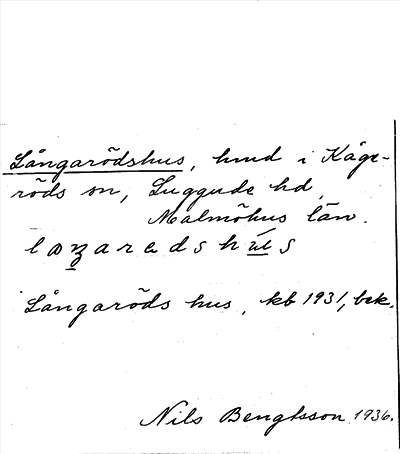 Långarödshus, hmd i Kåge-
röds sn, Luggude hd,
Malmöhus län.
Långaröds hus, kb 1931, bek.
Nils Bengtsson 1936.